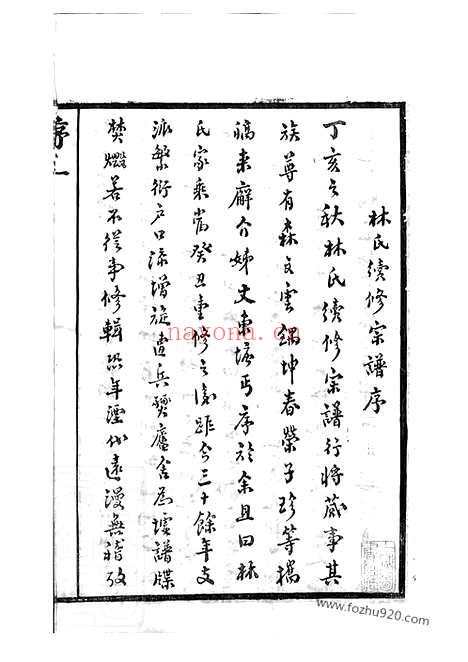 林氏續修宗譜序
丁亥之秋林氏續修宗譜行將蕆事其
族尊有森文雲錦坤春榮子珍等攜
稿來廨介姊丈東塘丐序於余且曰林
氏家乘當癸丑重修之後距今三十餘年支
派繁衍戶口添增旋遭兵燹廬舍為墟譜牒
焚燬若不從事修輯恐年湮代遠漫無稽攷
序一
nayonu.cn
www.fozhu920.com